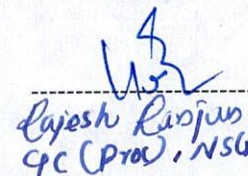 Rajesh Ranjan
GC (Prov), NSG